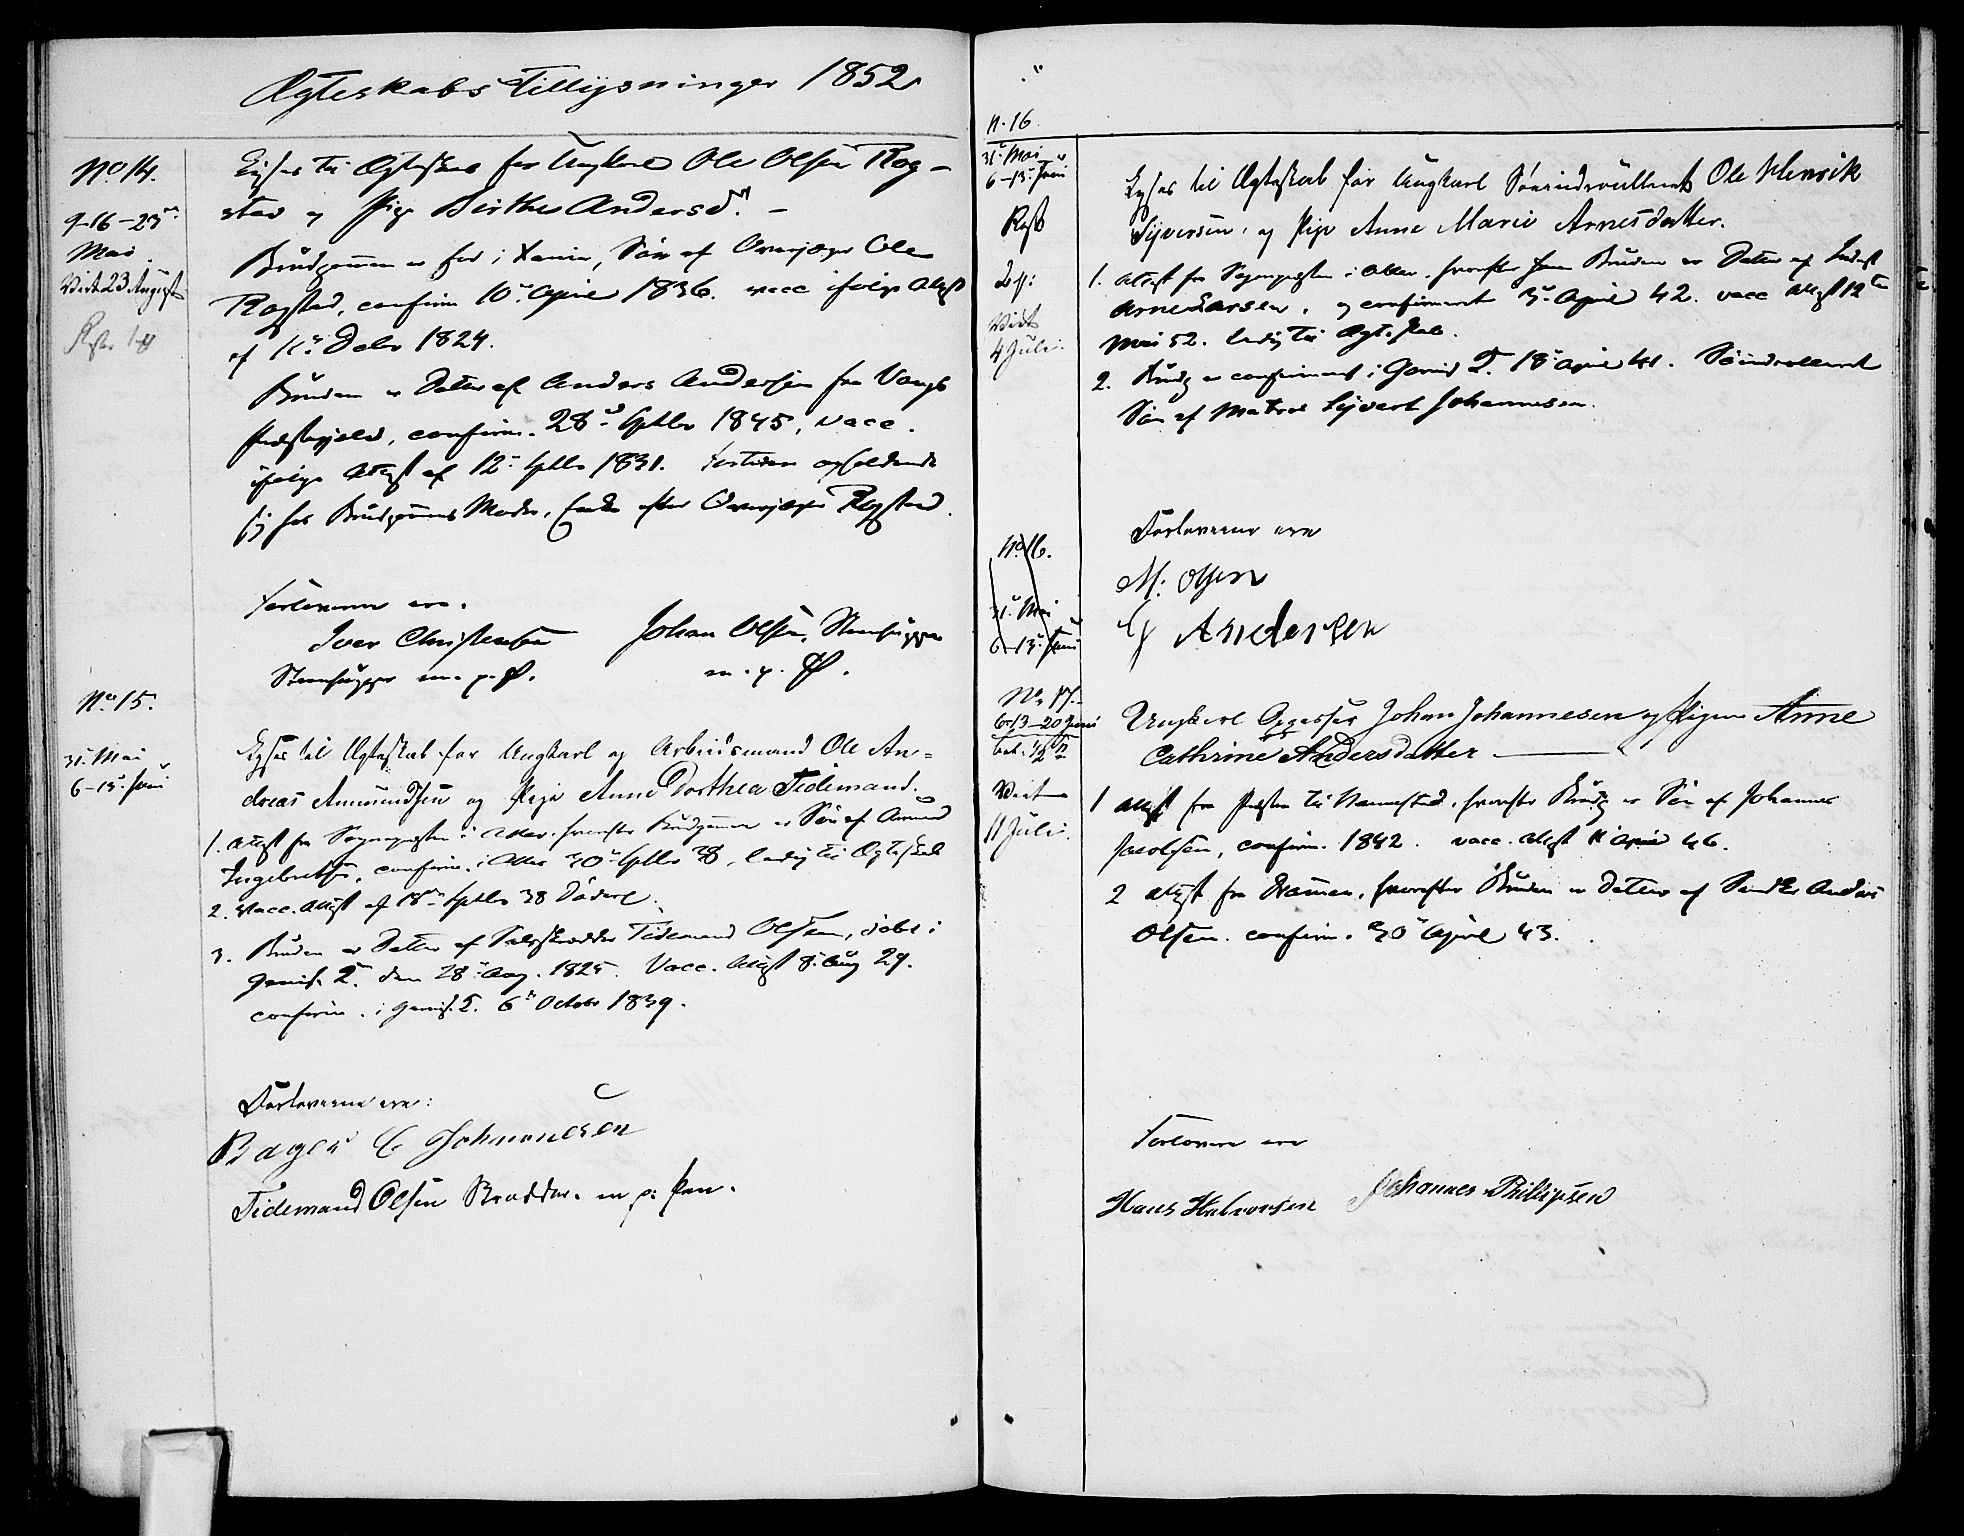 Ægteskabs Tillysninger 1852
No 14.
9-16-23de
Mai
Viet 23 August
Lyses til Ægteskab for Ungkarl Ole Olsen Rog-
stad og Pige Birthe Andersd. -
Brudgommen er fød i Xania, Søn af Overjæger Ole
Rogstad, confirm 10de April 1836. vacc ifølge Attest
af 11te Decbr 1824.
Bruden er Datter af Anders Andersen fra Vangs
Præstegjeld, confirm. 28de Septbr 1845, vacc.
ifølge Attest af 12te Septbr 1831. Fortiden opholdende
sig hos Brudgommens Moder, Enke efter Overjæger Rogstad.
Forloverne ere.
Iver Christensen Johan Olsen, Steenhugger
Steenhugger m. p. P. m. p. P.
No 15.
31te Mai
6-13de Juni
Lyses til Ægteskab for Ungkarl og Arbeidsmand Ole An-
dreas Amundsen og Pige Anne Dorthea Tidemand.
1. Attest fra Sognepræsten i Aker. hvorefter Brudgommen er Søn af Amund
Ingebretsen, confirm. i Aker 30te Septbr 38, ledig til Ægteskab
2. Vacc. Attest af 18de Septbr 38
3. Bruden er Datter af Tidemand Olsen, døbt i
Garnis. den 28de Aug. 1825. Vacc. Attest 8de Aug 29.
confirm. i Garnis. 6te Octobr 1839.
Forloverne ere:
C. Johannesen
Tidemand Olsen Skrædder. m p. Pen.
N. 16
31te Mai
6-13de Juni
Viet
4 Juli
Lyses til Ægteskab for Ungkarl Søeindrulleret Ole Henrik
Syversen, og Pige Anne Marie Arnesdatter.
1. Attest fra Sognepræsten i Aker. hvorefter Bruden er Datter af
Arne Larsen, og confirmeret April 42. vacc Attest 12te
Mai 52. ledig til Ægteskab.
2. Brudg er confirmeret i Garnis 18de April 41. Søindrolleret
Søn af Matros Syvert Johannesen.
Forloverne ere
M. Olsen
Andersen
No 16.
31te Mai
6-13de Juni
No 17.
6-13-20 Juni
Viet
11 Juli
Ungkarl Johan Johannesen og Pigen Anne
Cathrine Andersdatter
1 Attest fra Præsten til Nannestad, hvorefter Brudg er Søn af Johannes
Jacobsen, confirm. 1842. vacc. Attest April 46.
2 Attest fra Drammen, hvorefter Bruden er Datter af Anders
Olsen. confirm. 30te April 43.
Forlovere ere
Hans Halvorsen Johannes Philipsen